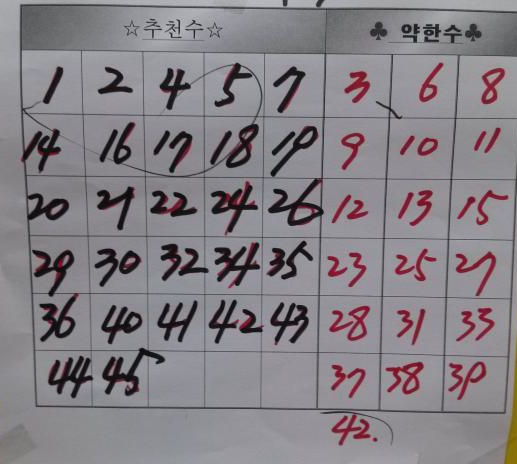 ☆추천수☆ ♣ 약한수♣
1 2 4 5 7 3 6 8
14 16 17 18 19 9 10 11
20 21 22 24 26 12 13 15
29 30 32 34 35 23 25 27
36 40 41 42 43 28 31 33
44 45 37 38 39
42.